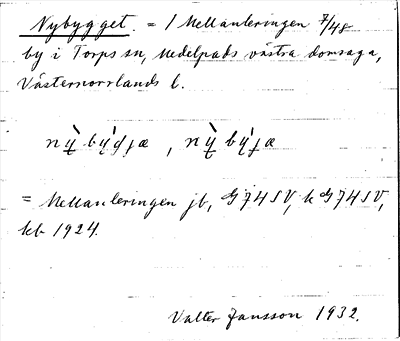 Nybygget. = 1 Mellanleringen 7/48
by i Torps sn, Medelpads västra domsaga,
Västernorrlands l.
nỳ̜ bý̜ɟjæ , nỳ̜ bý̜jæ
= Mellanleringen jb,
kb 1924.
Valter Jansson 1932.